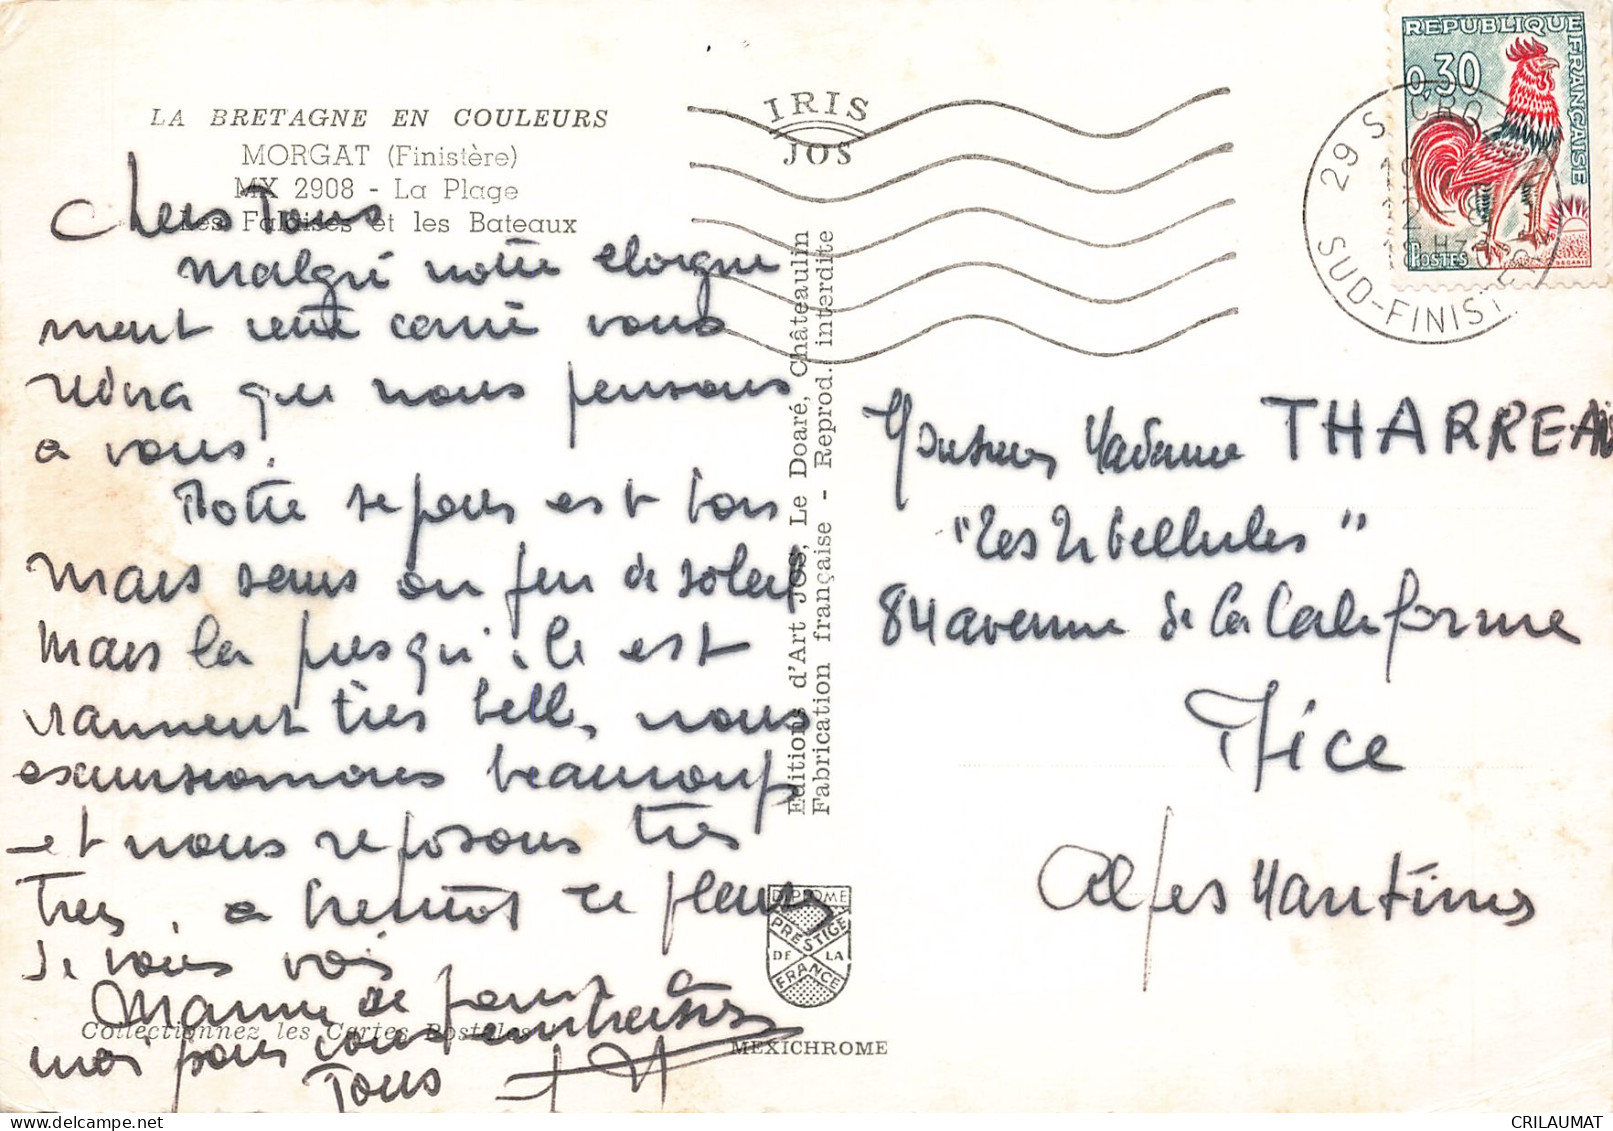 LA BRETAGNE EN COULEURS
MORGAT (Finistère)
MX 2908 - La Plage
Les Falaises et les Bateaux
Chers Tous
malgré notre eloigne
ment cette carte vous
dira que nous pensons
a vous!
Notre sejour est bon
mais sans un feu de soleil
Mais la presqu'ile est
vraiment très belle, nous
excursionnons beaucoup
et nous reposons très
Tres. a bientôt le plaisir
de vous voir
Mamie se joint a
moi pour vous embrasser
Tous
Collectionnez les Cartes Postales
IRIS
JOS
Editions d'Art JOS, Le Doaré, Châteaulin
Fabrication française - Reprod. interdite
DIPLOME
PRESTIGE
DE LA
FRANCE
MEXICHROME
REPUBLIQUE FRANÇAISE
0,30
POSTES
DECARIS
29 S CRO
SUD-FINIST
Monsieur Madame THARREAU
"Les Libellules"
84 avenue de la Californie
Nice
Alpes Maritimes
CRILAUMAT